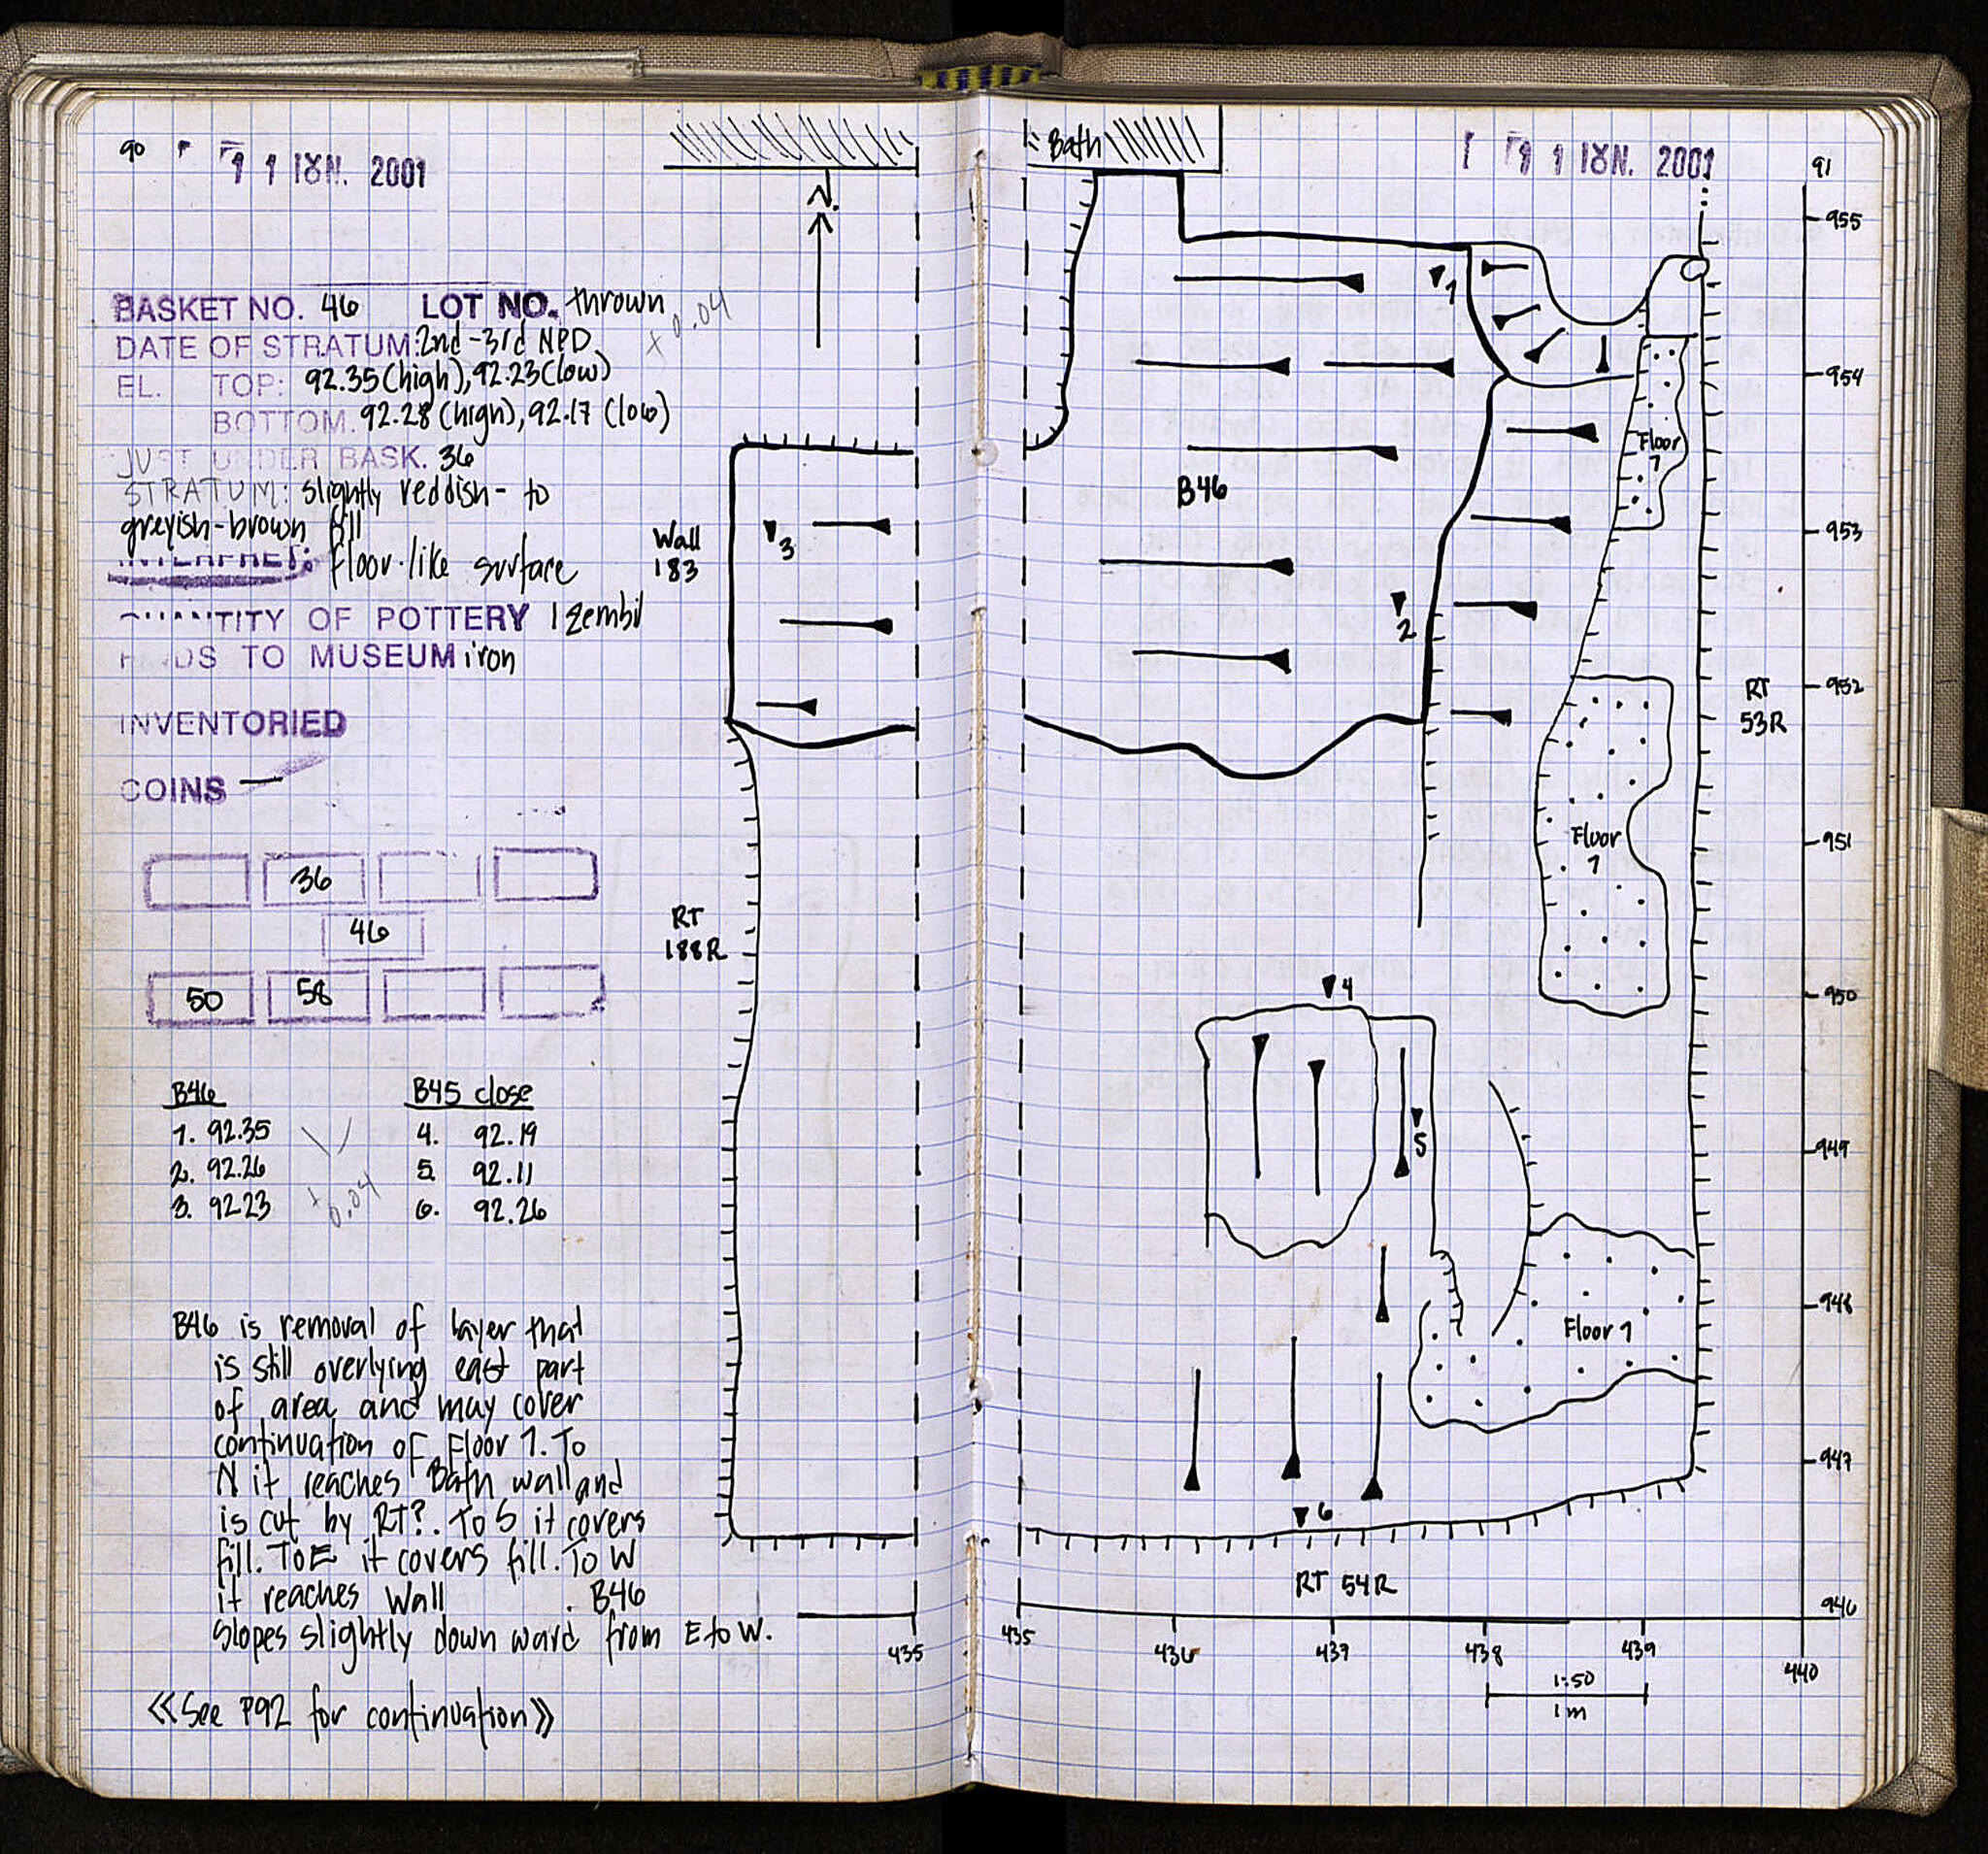 90
11 ΙΟΥΝ. 2001
BASKET NO. 46 LOT NO. thrown
+ 0.04
DATE OF STRATUM: 2nd-3rd NPD
EL. TOP: 92.35 (high), 92.23 (low)
BOTTOM. 92.28 (high), 92.17 (low)
JUST UNDER BASK. 36
STRATUM: slightly reddish- to
greyish-brown fill
INTERPRET: floor-like surface
QUANTITY OF POTTERY 1 zembil
FINDS TO MUSEUM iron
INVENTORIED
COINS —
36
46
50 58
B46
1. 92.35
2. 92.26
3. 92.23
+ 0.04
B45 close
4. 92.19
5. 92.11
6. 92.26
B46 is removal of layer that
is still overlying east part
of area and may cover
continuation of Floor 1. To
N it reaches Bath wall and
is cut by RT?. To S it covers
fill. To E it covers fill. To W
it reaches Wall . B46
slopes slightly down ward from E to W.
<<See P92 for continuation>>
N.
3
Wall
183
RT
188R
435
Bath
11 ΙΟΥΝ. 2001
91
1
B46
2
Floor
1
Floor
1
RT
53R
4
5
Floor 1
6
RT 54R
955
954
953
952
951
950
949
948
947
946
435
436
437
438
439
440
1:50
1m